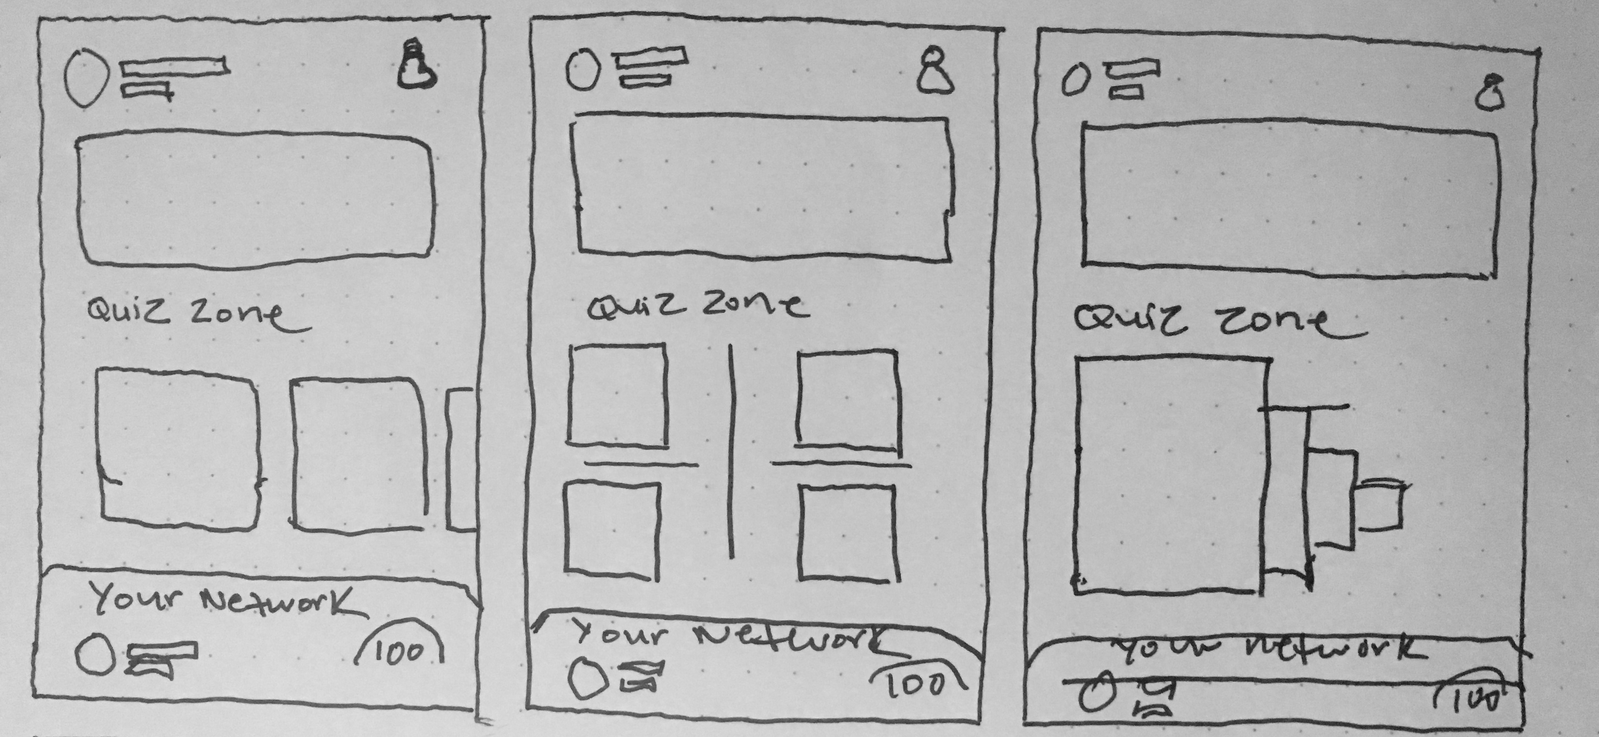 Quiz Zone
Your Network
100
Quiz Zone
Your Network
100
Quiz Zone
Your Network
100